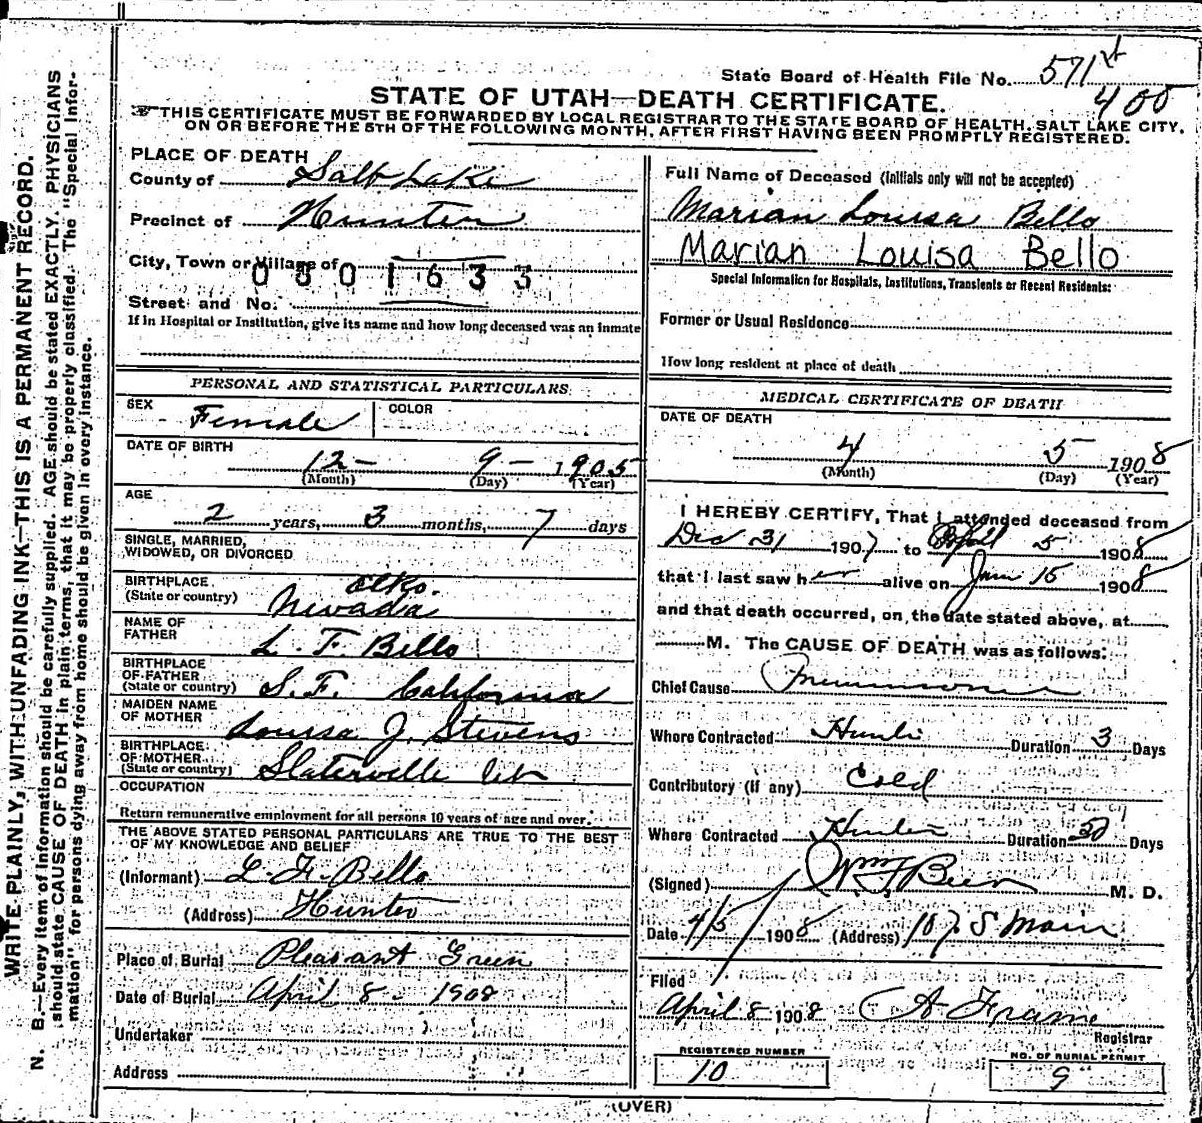 State Board of Health File No. 571
400
STATE OF UTAH—DEATH CERTIFICATE.
THIS CERTIFICATE MUST BE FORWARDED BY LOCAL REGISTRAR TO THE STATE BOARD OF HEALTH, SALT LAKE CITY,
ON OR BEFORE THE 5TH OF THE FOLLOWING MONTH, AFTER FIRST HAVING BEEN PROMPTLY REGISTERED.
WRITE PLAINLY, WITH UNFADING INK—THIS IS A PERMANENT RECORD.
N. B.—Every item of information should be carefully supplied. AGE should be stated EXACTLY. PHYSICIANS
should state CAUSE OF DEATH in plain terms, that it may be properly classified. The "Special Infor-
mation" for persons dying away from home should be given in every instance.
PLACE OF DEATH
County of Salt Lake
Precinct of Hunter
City, Town or Village of
0801633
Street and No.
If in Hospital or Institution, give its name and how long deceased was an inmate
PERSONAL AND STATISTICAL PARTICULARS
SEX Female COLOR
DATE OF BIRTH
12 - 9 - 1905
(Month) (Day) (Year)
AGE
2 years, 3 months, 7 days
SINGLE, MARRIED,
WIDOWED, OR DIVORCED
BIRTHPLACE Elko.
(State or country) Nevada
NAME OF
FATHER L. F. Bello
BIRTHPLACE
OF FATHER
(State or country) S.F. California
MAIDEN NAME
OF MOTHER Louisa J. Stevens
BIRTHPLACE
OF MOTHER
(State or country) Slaterville Ut
OCCUPATION
Return remunerative employment for all persons 10 years of age and over.
THE ABOVE STATED PERSONAL PARTICULARS ARE TRUE TO THE BEST
OF MY KNOWLEDGE AND BELIEF
(Informant) L. F. Bello
(Address) Hunter
Place of Burial Pleasant Green
Date of Burial April 8 - 1908
Undertaker
Address
Full Name of Deceased (Initials only will not be accepted)
Marian Louisa Bello
Marian Louisa Bello
Special Information for Hospitals, Institutions, Transients or Recent Residents:
Former or Usual Residence
How long resident at place of death
MEDICAL CERTIFICATE OF DEATH
DATE OF DEATH
4 5 1908
(Month) (Day) (Year)
I HEREBY CERTIFY, That I attended deceased from
Dec 31 1907 to 5 1908
that I last saw her alive on Jan 15 1908
and that death occurred, on the date stated above, at
M. The CAUSE OF DEATH was as follows:
Chief Cause Pneumonia
Where Contracted Hunter Duration 3 Days
Contributory (if any) Cold
Where Contracted Hunter Duration Days
(Signed) Wm F Beer M. D.
Date 4/5 1908 (Address) 107 S Main
Filed
April 8 1908 A Frame
Registrar
REGISTERED NUMBER
10
NO. OF BURIAL PERMIT
9
(OVER)